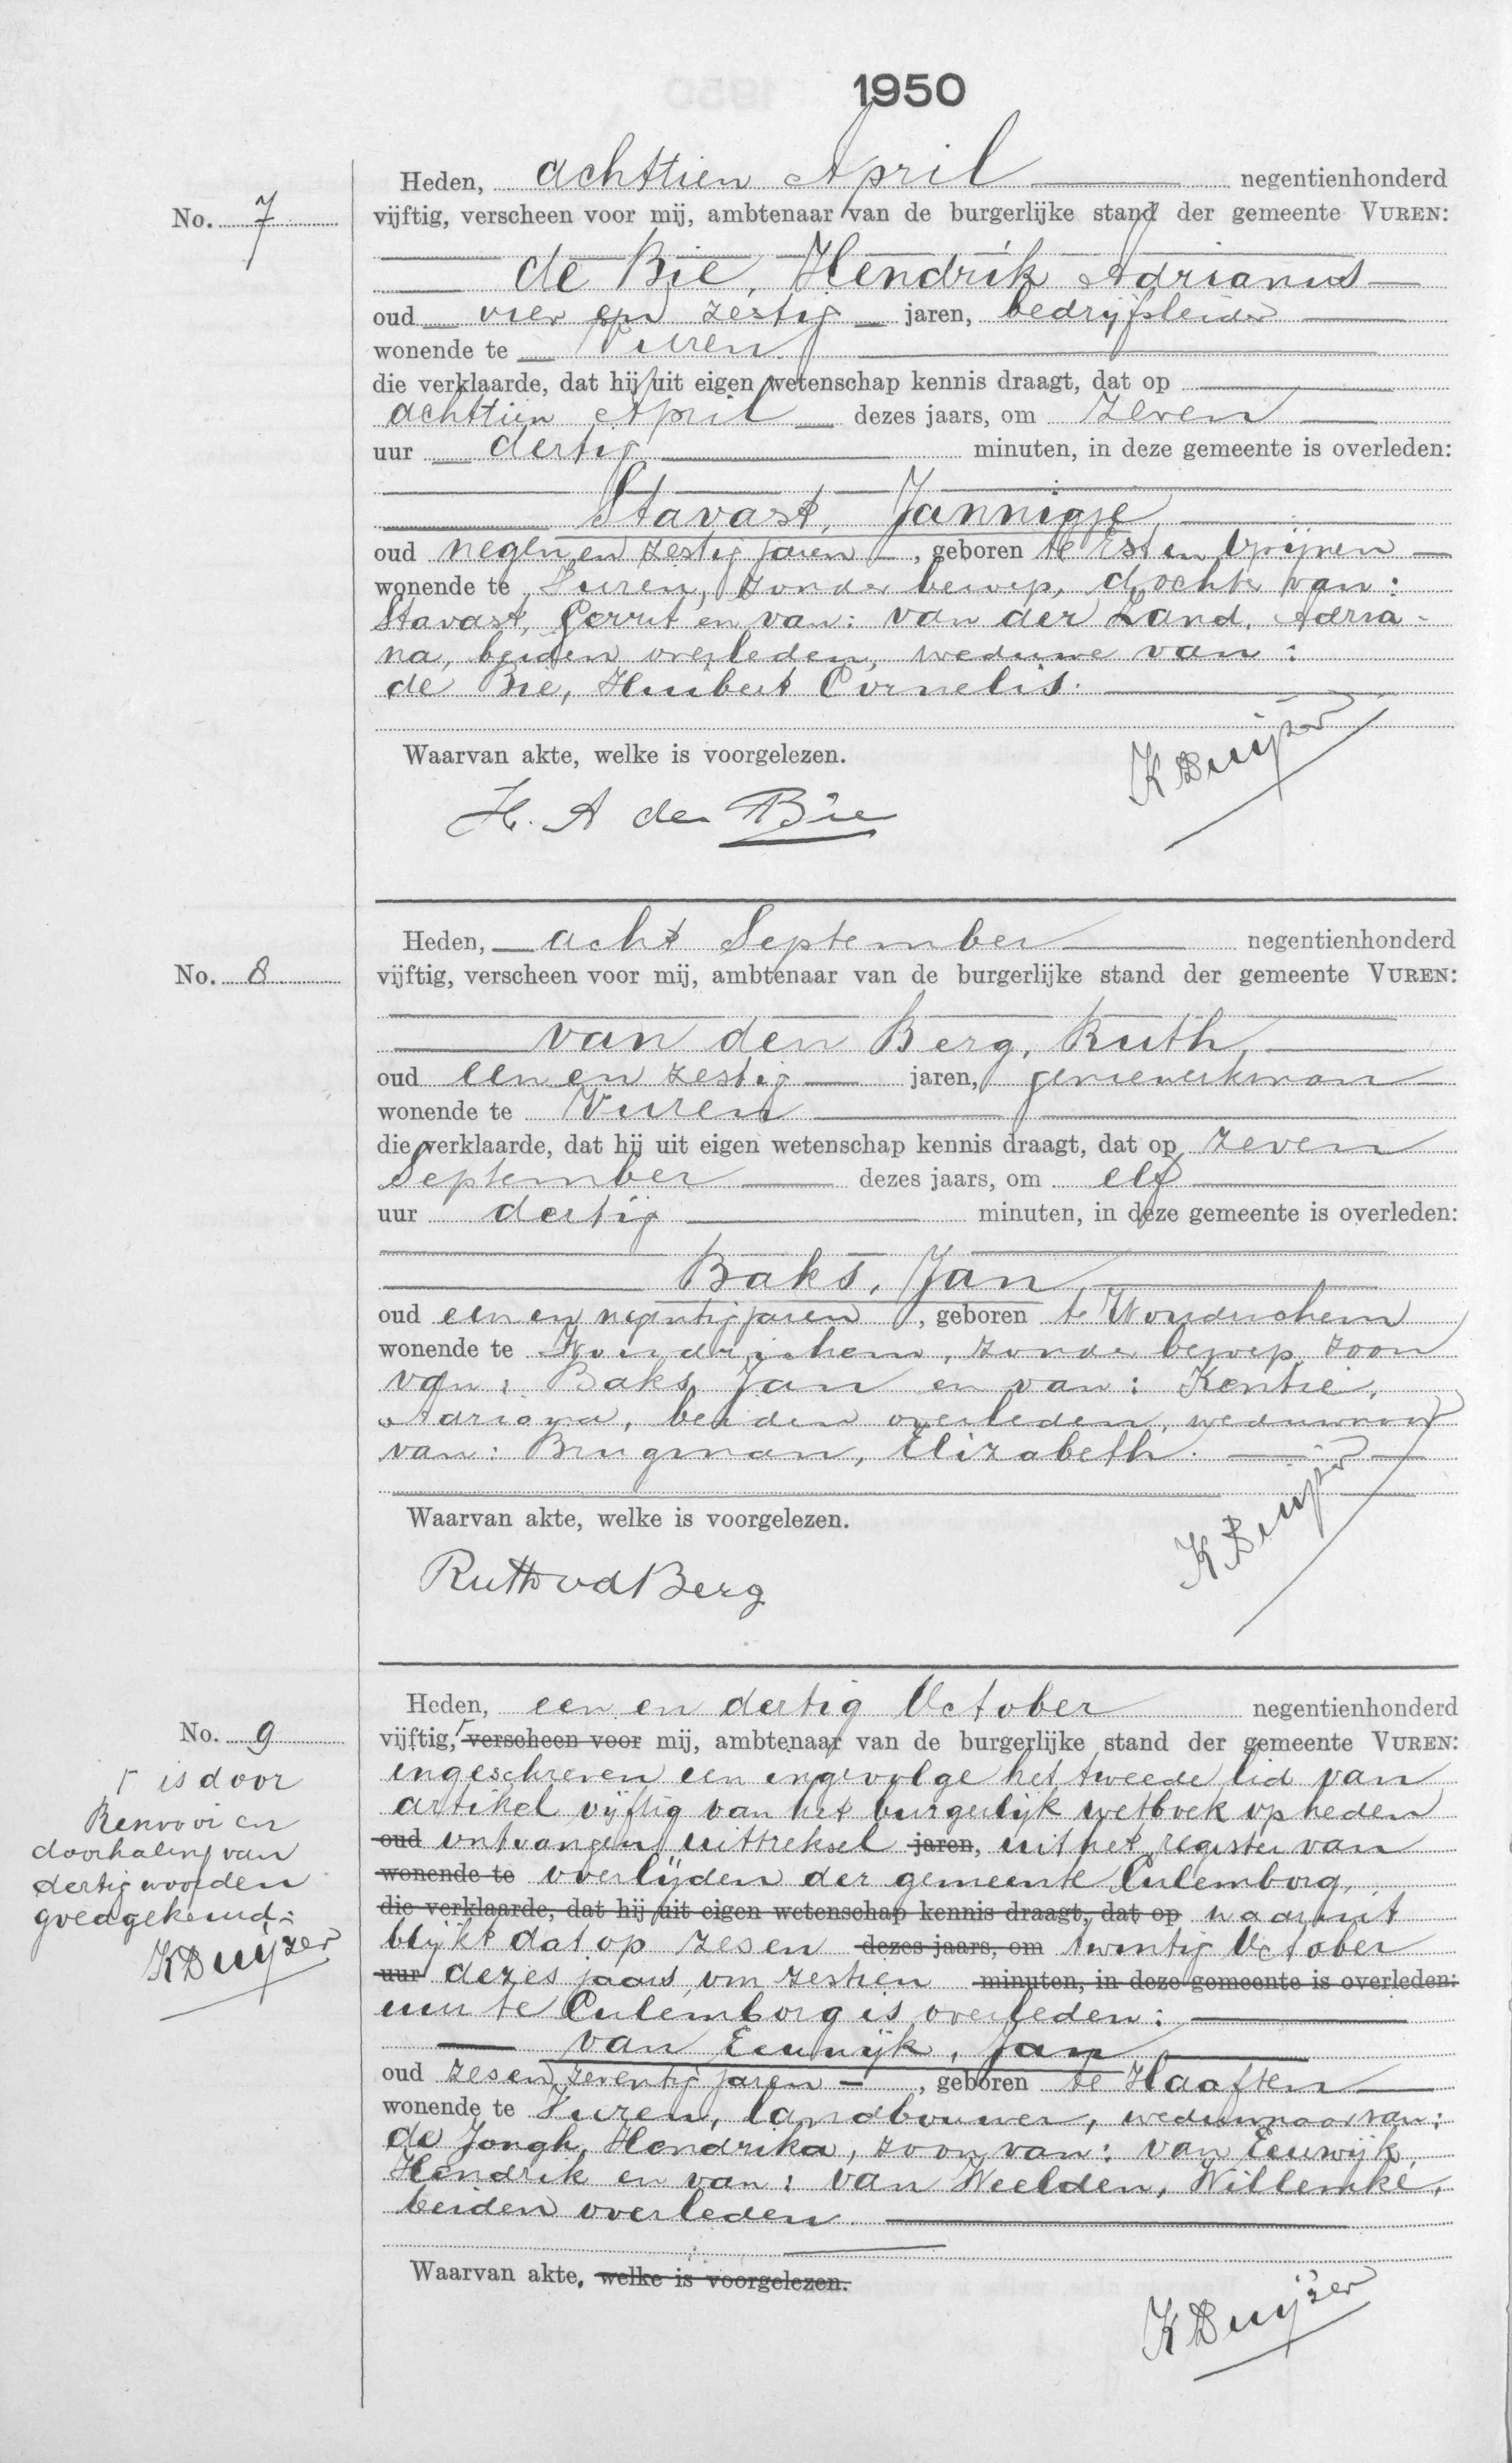 1950
Heden, achttien April negentienhonderd
No. 7
vijftig, verscheen voor mij, ambtenaar van de burgerlijke stand der gemeente VUREN:
de Bie, Hendrik Adrianus
oud vier en zestig jaren, bedrijfsleider
wonende te Vuren
die verklaarde, dat hij uit eigen wetenschap kennis draagt, dat op
achttien April dezes jaars, om zeven
uur dertig minuten, in deze gemeente is overleden:
Stavast, Jannigje,
oud negen en zestig jaren, geboren te Est en Opijnen
wonende te Vuren, zonder beroep, dochter van:
Stavast, Gerrit en van: van der Zand, Adria-
na, beiden overleden, weduwe van:
de Bie, Huibert Cornelis.
Waarvan akte, welke is voorgelezen.
KDuijzer
H. A de Bie
Heden, acht September negentienhonderd
No. 8
vijftig, verscheen voor mij, ambtenaar van de burgerlijke stand der gemeente VUREN:
van den Berg, Ruth,
oud een en zestig jaren, geniewerkman
wonende te Vuren
die verklaarde, dat hij uit eigen wetenschap kennis draagt, dat op zeven
September dezes jaars, om elf
uur dertig minuten, in deze gemeente is overleden:
Baks, Jan
oud een en negentig jaren, geboren te Woudrichem
wonende te Woudrichem, zonder beroep, zoon
van: Baks, Jan en van: Kentie,
Adriana, beiden overleden, weduwnaar
van: Brugman, Elizabeth.
Waarvan akte, welke is voorgelezen.
KDuijzer
Ruth vd Berg
Heden, een en dertig October negentienhonderd
No. 9
vijftig, verscheen voor mij, ambtenaar van de burgerlijke stand der gemeente VUREN:
ingeschreven een ingevolge het tweede lid van
artikel vijftig van het burgerlijk wetboek op heden
oud ontvangen uittreksel jaren, uit het register van
wonende te overlijden der gemeente Culemborg,
die verklaarde, dat hij uit eigen wetenschap kennis draagt, dat op waaruit
blijkt dat op zes en dezes jaars, om twintig October
uur dezes jaars om zestien minuten, in deze gemeente is overleden:
uur te Culemborg is overleden:
van Eeuwijk, Jan
oud zes en zeventig jaren, geboren te Haaften
wonende te Vuren, landbouwer, weduwnaar van:
de Jongh, Hendrika, zoon van: van Eeuwijk,
Hendrik en van: van Weelden, Willemke,
beiden overleden.
Waarvan akte, welke is voorgelezen.
KDuijzer
is door
Renvooi en
doorhaling van
dertig woorden
goedgekeurd:
KDuijzer